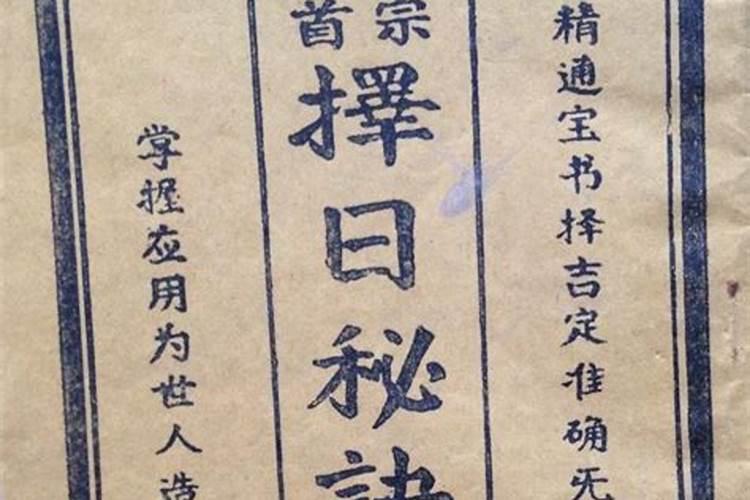 精通宝书择吉定准确无
宗首
擇日秘訣
掌握应用为世人造